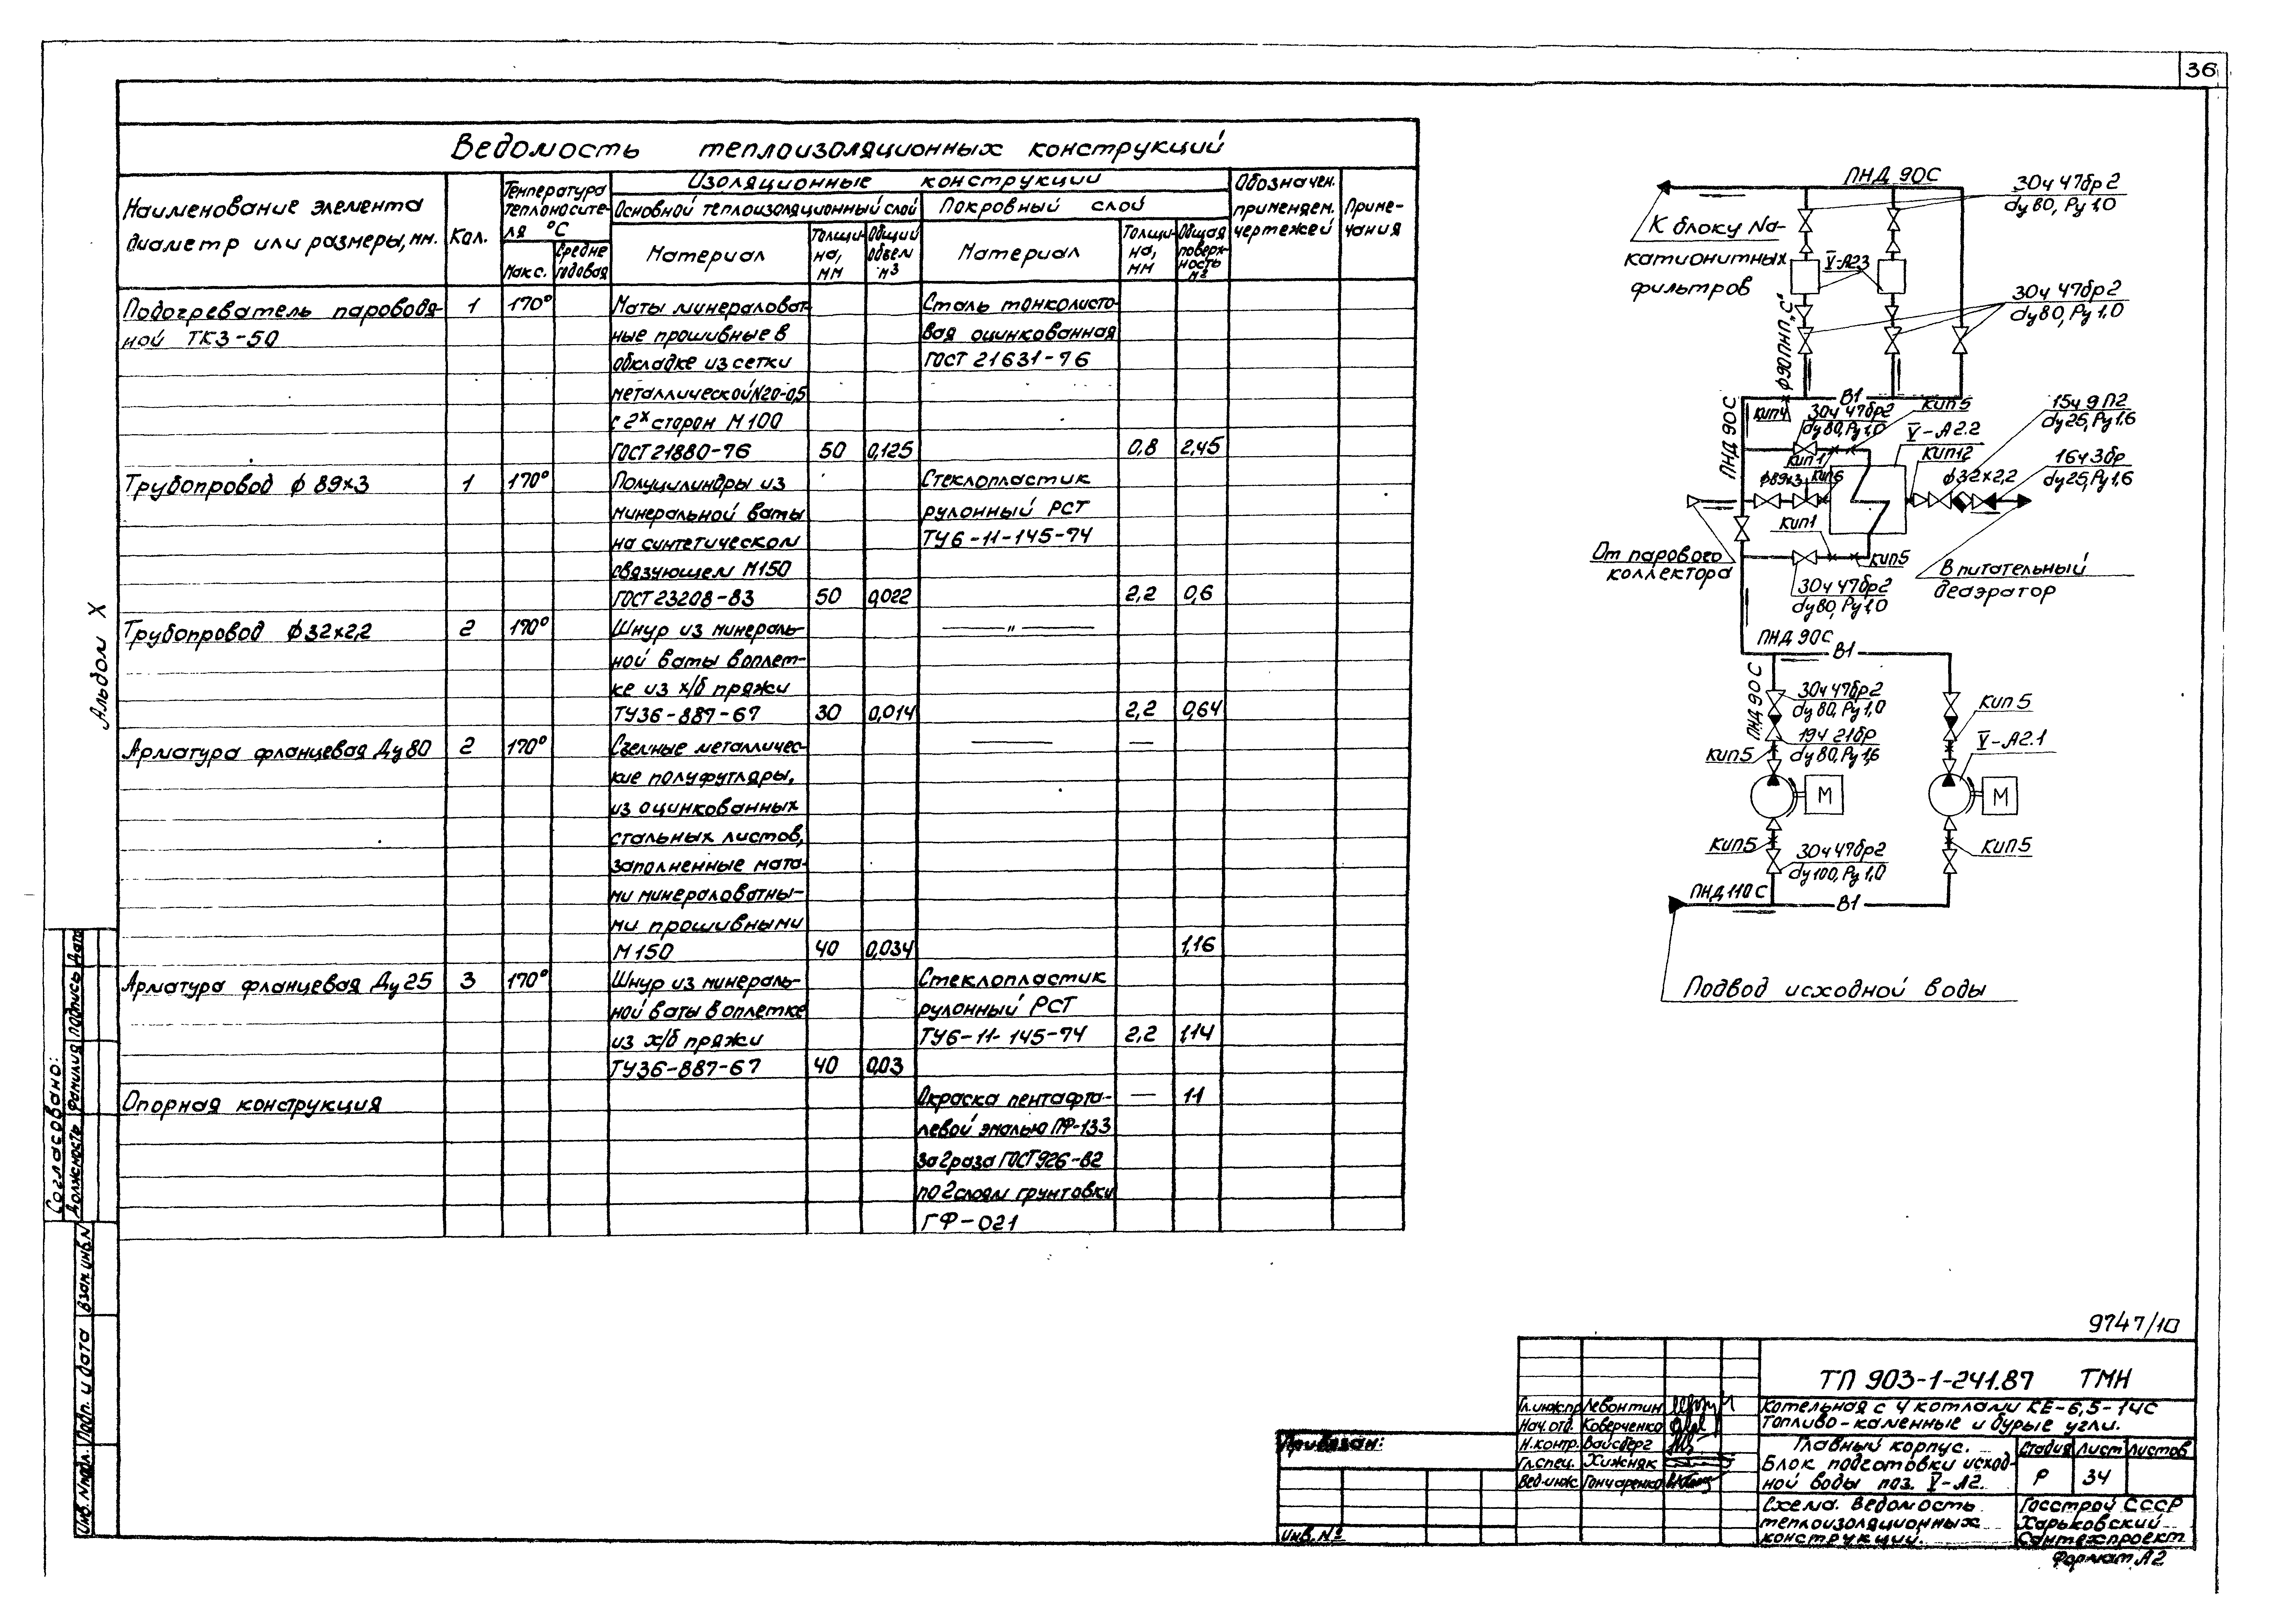 36
Ведомость теплоизоляционных конструкций
Наименование элемента
диаметр или размеры, мм.
Кол.
Температура
теплоносите-
ля °С
Макс.
Средне
годовая
Изоляционные конструкции
Основной теплоизоляционный слой
Покровный слой
Материал
Толщи-
на,
мм
Общий
объем
м3
Материал
Толщи-
на,
мм
Общая
поверх-
ность
м2
Обозначен.
применяем.
чертежей
Приме-
чания
Подогреватель пароводя-
ной ТКЗ-50
1
170°
Маты минераловат-
ные прошивные в
обкладке из сетки
металлической N20-0,5
с 2х сторон М100
ГОСТ 21880-76
50
0,125
Сталь тонколисто-
вая оцинкованная
ГОСТ 21631-76
0,8
2,45
Трубопровод ф 89х3
1
170°
Полуцилиндры из
минеральной ваты
на синтетическом
связующем М150
ГОСТ 23208-83
50
0,022
Стеклопластик
рулонный РСТ
ТУ6-11-145-74
2,2
0,6
Трубопровод ф32х2,2
2
170°
Шнур из минераль-
ной ваты воплет-
ке из х/б пряжи
ТУ36-887-67
30
0,014
— " —
2,2
0,64
Арматура фланцевая Ду80
2
170°
Съемные металличес-
кие полуфутляры,
из оцинкованных
стальных листов,
заполненные мата-
ми минераловатны-
ми прошивными
М150
40
0,034
—
—
1,16
Арматура фланцевая Ду25
3
170°
Шнур из минераль-
ной ваты в оплетке
из х/б пряжи
ТУ36-887-67
40
0,03
Стеклопластик
рулонный РСТ
ТУ6-11-145-74
2,2
1,14
Опорная конструкция
Окраска пентафта-
левой эмалью ПФ-133
за 2 раза ГОСТ 926-82
по 2 слоям грунтовки
ГФ-021
—
11
ПНД 90С
30ч 47бр2
dу80, Ру1,0
К блоку Na-
катионитных
фильтров
V-А2.3
30ч 47бр2
dу80, Ру1,0
ф90ПНП„С"
ПНД 90С
В1
КИП4
30ч 47бр2
dу80, Ру1,0
КИП5
15ч 9П2
dу25, Ру1,6
V-А2.2
КИП1
КИП12
16ч3бр
dу25, Ру1,6
ф89х3
КИП6
ф32х2,2
КИП1
От парового
коллектора
КИП5
В питательный
деаэратор
30ч 47бр2
dу80, Ру1,0
ПНД 90С
В1
ПНД 90С
30ч 47бр2
dу80, Ру1,0
КИП5
19ч 21бр
dу80, Ру1,6
V-А2.1
КИП5
М
М
КИП5
30ч 47бр2
dу100, Ру1,0
КИП5
ПНД 110С
В1
Подвод исходной воды
Альбом X
Согласовано:
Должность
Фамилия
Подпись
Дата
Взам.инв.N
Подп. и дата
Инв. Nподл.
9747/10
ТП 903-1-241.87 ТМН
Гл.инж.пр Левонтин
Нач.отд. Коверченко
Н.контр. Вайсберг
Гл.спец. Хижняк
Вед.инж. Гончаренко
Котельная с 4 котлами КЕ-6,5-14С
Топливо-каменные и бурые угли.
Главный корпус.
Блок подготовки исход-
ной воды поз. V-А2.
Стадия
Лист
Листов
Р
34
Схема. Ведомость
теплоизоляционных
конструкций.
Госстрой СССР
Харьковский
Сантехпроект
Привязан:
Инв. №
Формат А2